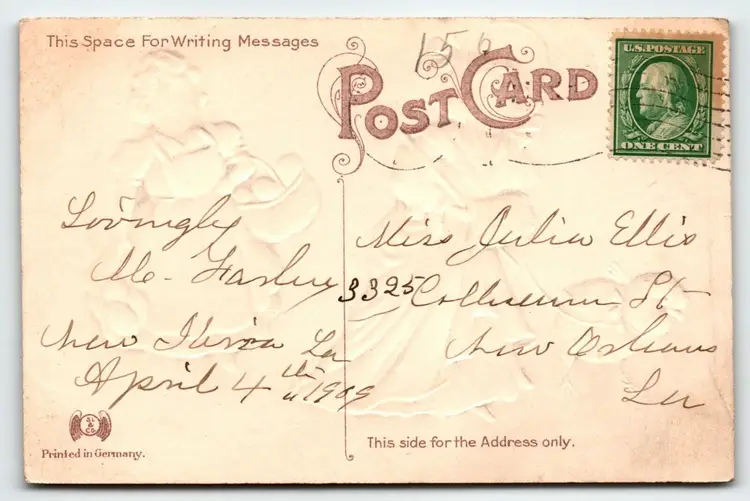 This Space For Writing Messages
156
POST CARD
U.S. POSTAGE
ONE CENT
Lovingly
Mc-
New Iberia La
April 4th 1909
Miss Julia Ellis
3325 Colliseum St
New Orleans
La
SL
& Co.
Printed in Germany.
This side for the Address only.